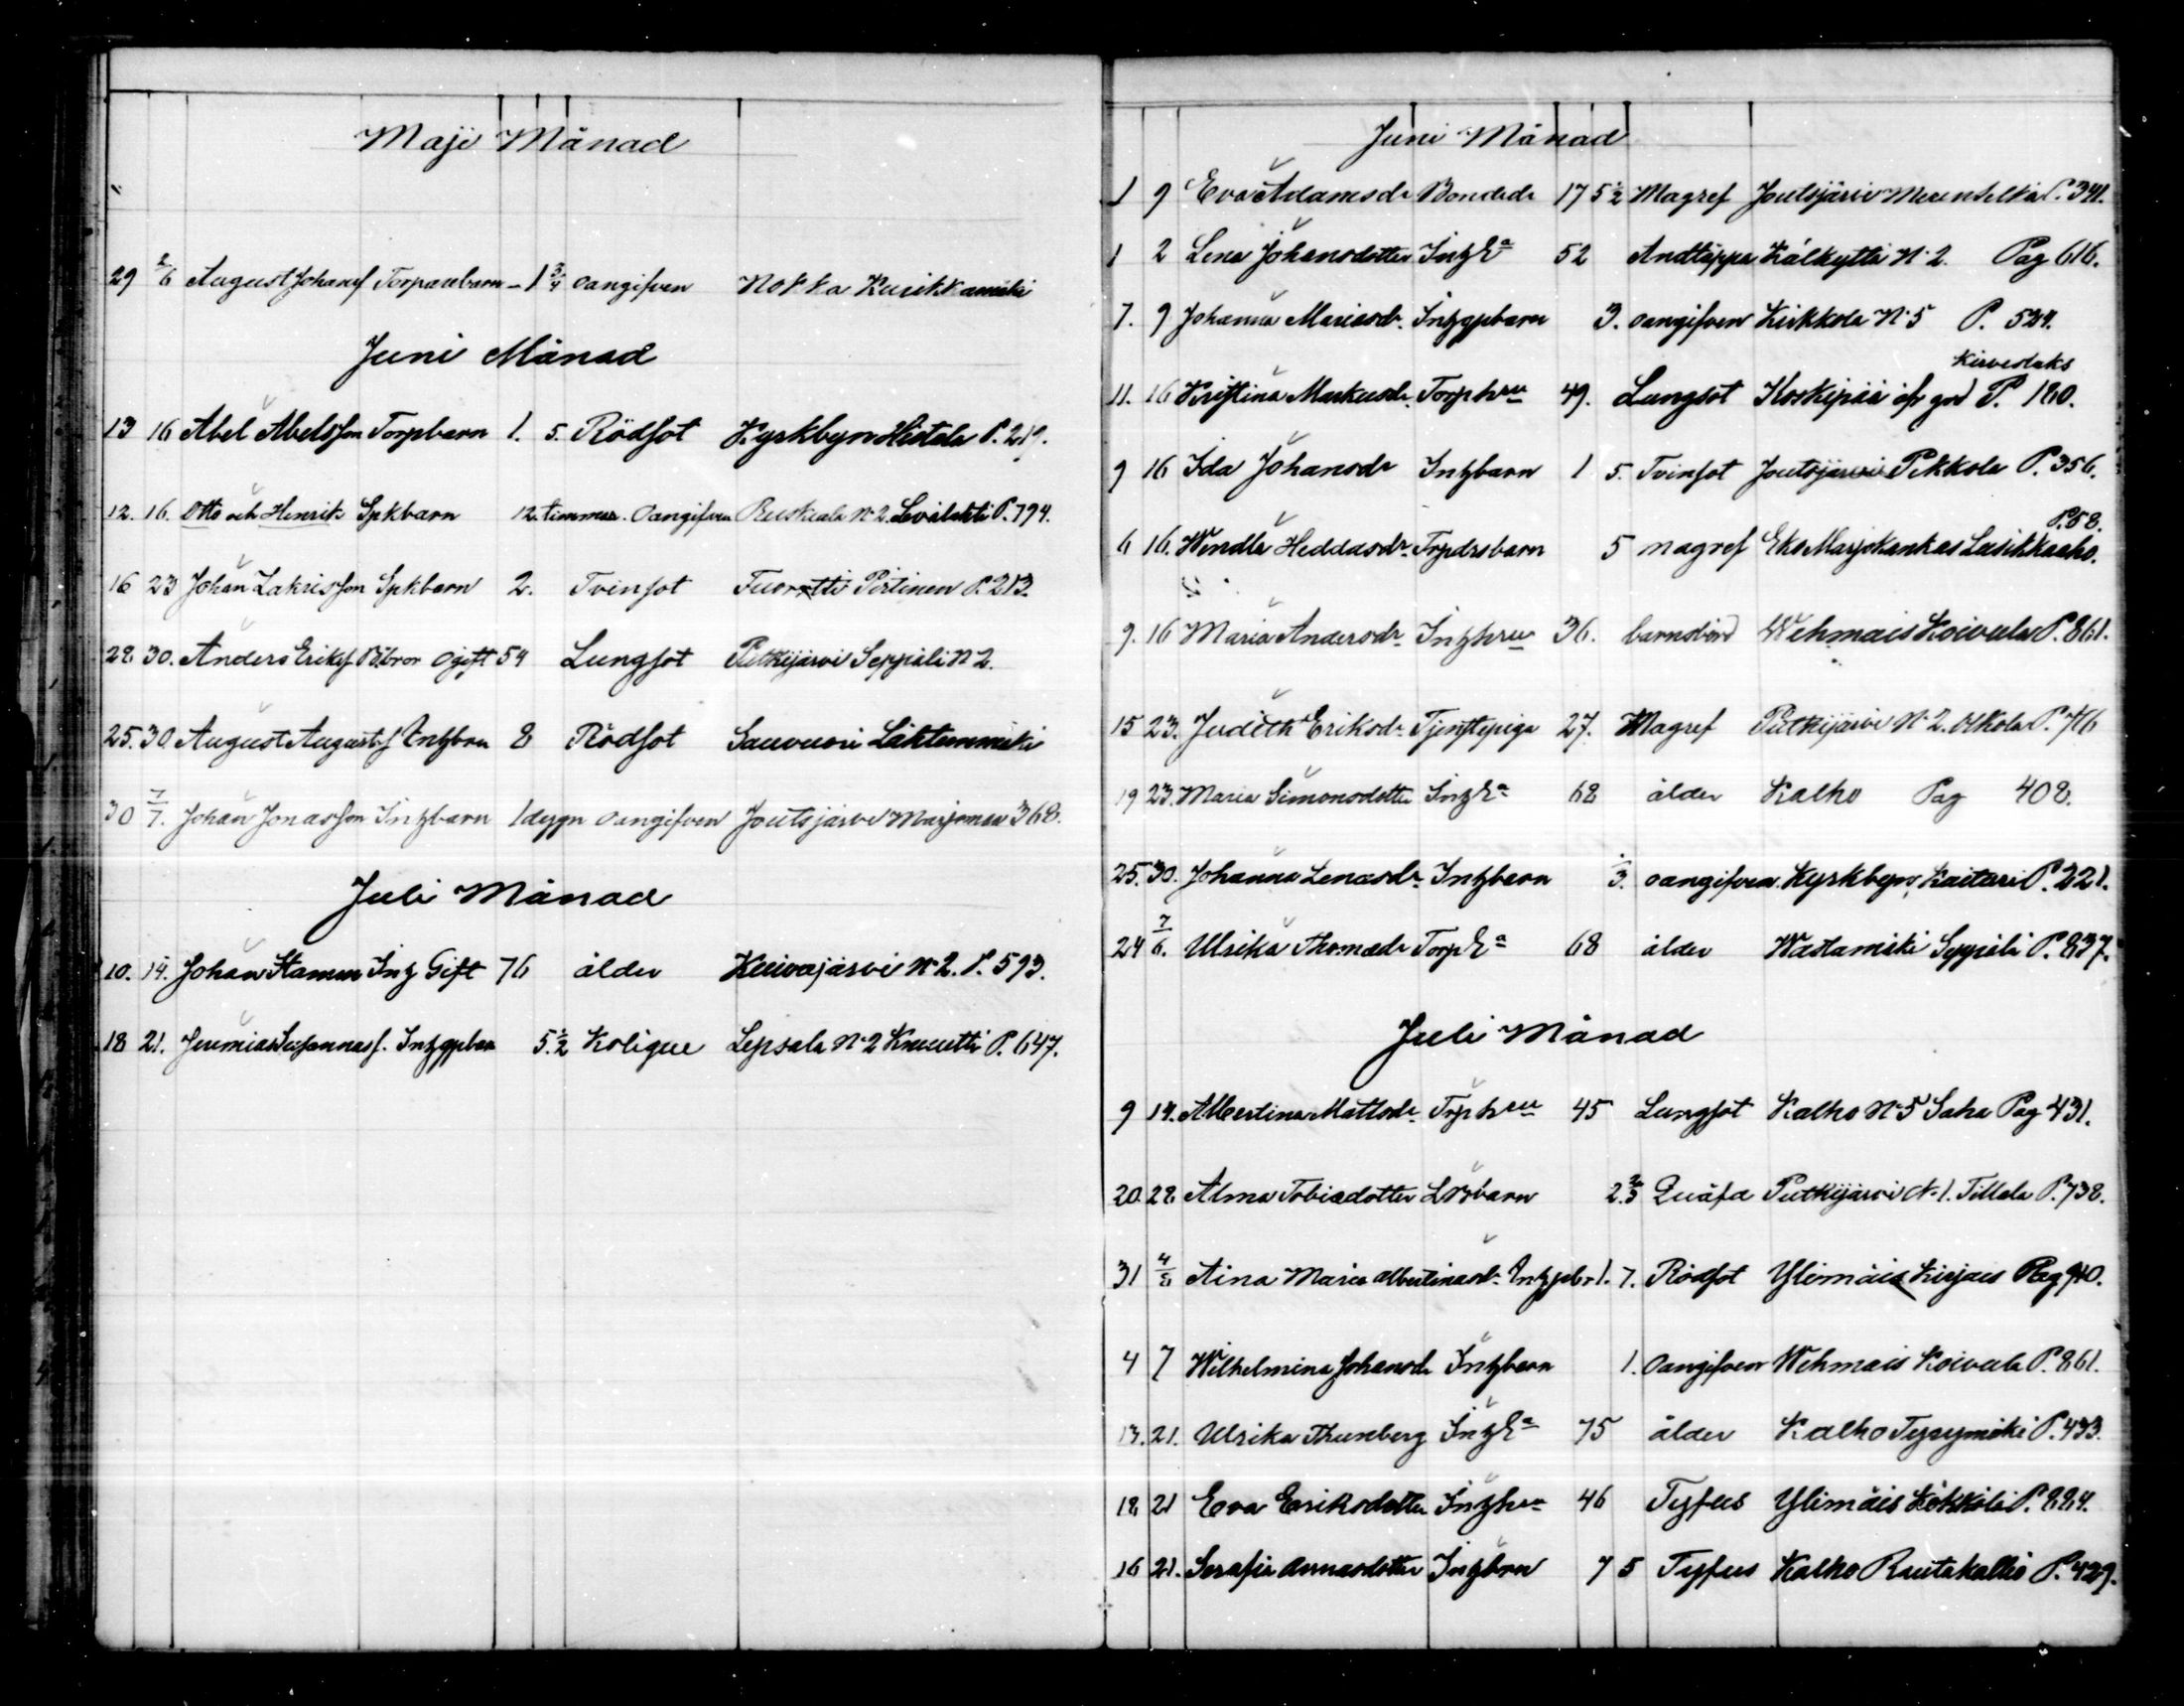 Maji Månad
29 2/6 August Johansf Torparebarn - 1 3/4 oangifven Nokka Kusikkamäki
Juni Månad
13 16 Abel Abelsson Torpbarn 1. 5. Rödsot Kyrkbyn Hietala P. 219.
12. 16. Otto och Henrik Spkbarn 12 timmar. Oangifven Ruskiala N:2. P. 794.
16 23 Johan Zakrisson Spkbarn 2. Tvinsot Pirtinen P. 213.
28 30. Anders Eriksf Bdbror Ogift 54 Lungsot Putkijärvi Seppäli N 2.
25. 30 August Augustsf Inhbrn 8 Rödsot Sauvuori Lähteenmäki
30 7/7. Johan Jonasson Inhbarn 1 dygn oangifven Joutsjärvi Marjamaa 368.
Juli Månad
10. 14. Johan Stamen Inh Gift 76 ålder Kuivajärvi N:2. P. 593.
18 21. Jeremias Susannasf. Inhgpbar 5 1/2 Kolique Lepsala N:2 Knuutti P. 647.
Juni Månad
1 9 Eva Adamsdr Bondedr 17 5 1/2 Magref Joutsjärvi Merenselkä P. 341.
1 2 Lena Johansdotter Inh Ea 52 Andtäppa Kälkytti N:2. Pag 616.
7. 9 Johanna Mariasdr. Inhgpbarn 3. oangifven Kirkkola N:5 P. 524.
Kirveslaks
11. 16 Kristina Markusdr. Torphru 49. Lungsot Koskipää åfv grd P. 180.
9 16 Ida Johansdr Inhbarn 1 5. Tvinsot Joutsjärvi Pekkola P. 356.
P. 58.
6 16. Wendla Heddasdr. Trpdrsbarn 5 magref Eko Marjakankas Lusikkaaho.
9. 16 Maria Andersdr Inhhru 36. barnsbörd Wehmais Koivula P. 861.
15 23. Judith Eriksdr Tjenstepiga 27. Magref Putkijärvi N:2. Ollola P. 746
19 23. Maria Simonsdotter Inh Ea 68 ålder Kalho Pag 408.
25. 30. Johanna Lenasdr. Inhbarn 3. oangifven Kyrkbyn, Kaitari P. 221.
24 7/6. Ulrika Thomasdr Torp Ea 68 ålder Wästämäki Seppäli P. 837.
Juli Månad
9 14. Albertina Mattsdr Trphru 45 Lungsot Kalho N:5 Saha Pag 431.
20. 28. Alma Tobiasdotter Lrsbarn 2. 2/3 Qväfd Putkijärvi N:1. Tillola P. 738.
31 4/8 Aina Maria Albertinasdr. Inhgpbr 1. 7. Rödsot Ylimäis Kirjais Pag 910.
4 7 Wilhelmina Johansdr Inhbarn 1. Oangifven Wehmais Koivula P. 861.
13. 21. Ulrika Thunberg Inh Ea 75 ålder Kalho Tyrymäki P. 433.
18 21 Eva Eriksdotter Inhhru 46 Tyfus Ylimäis Kökköli P. 884.
16 21. Serafia Annasdotter Inhbrn 7 5 Tyfus Kalho Rautakallio P. 429.